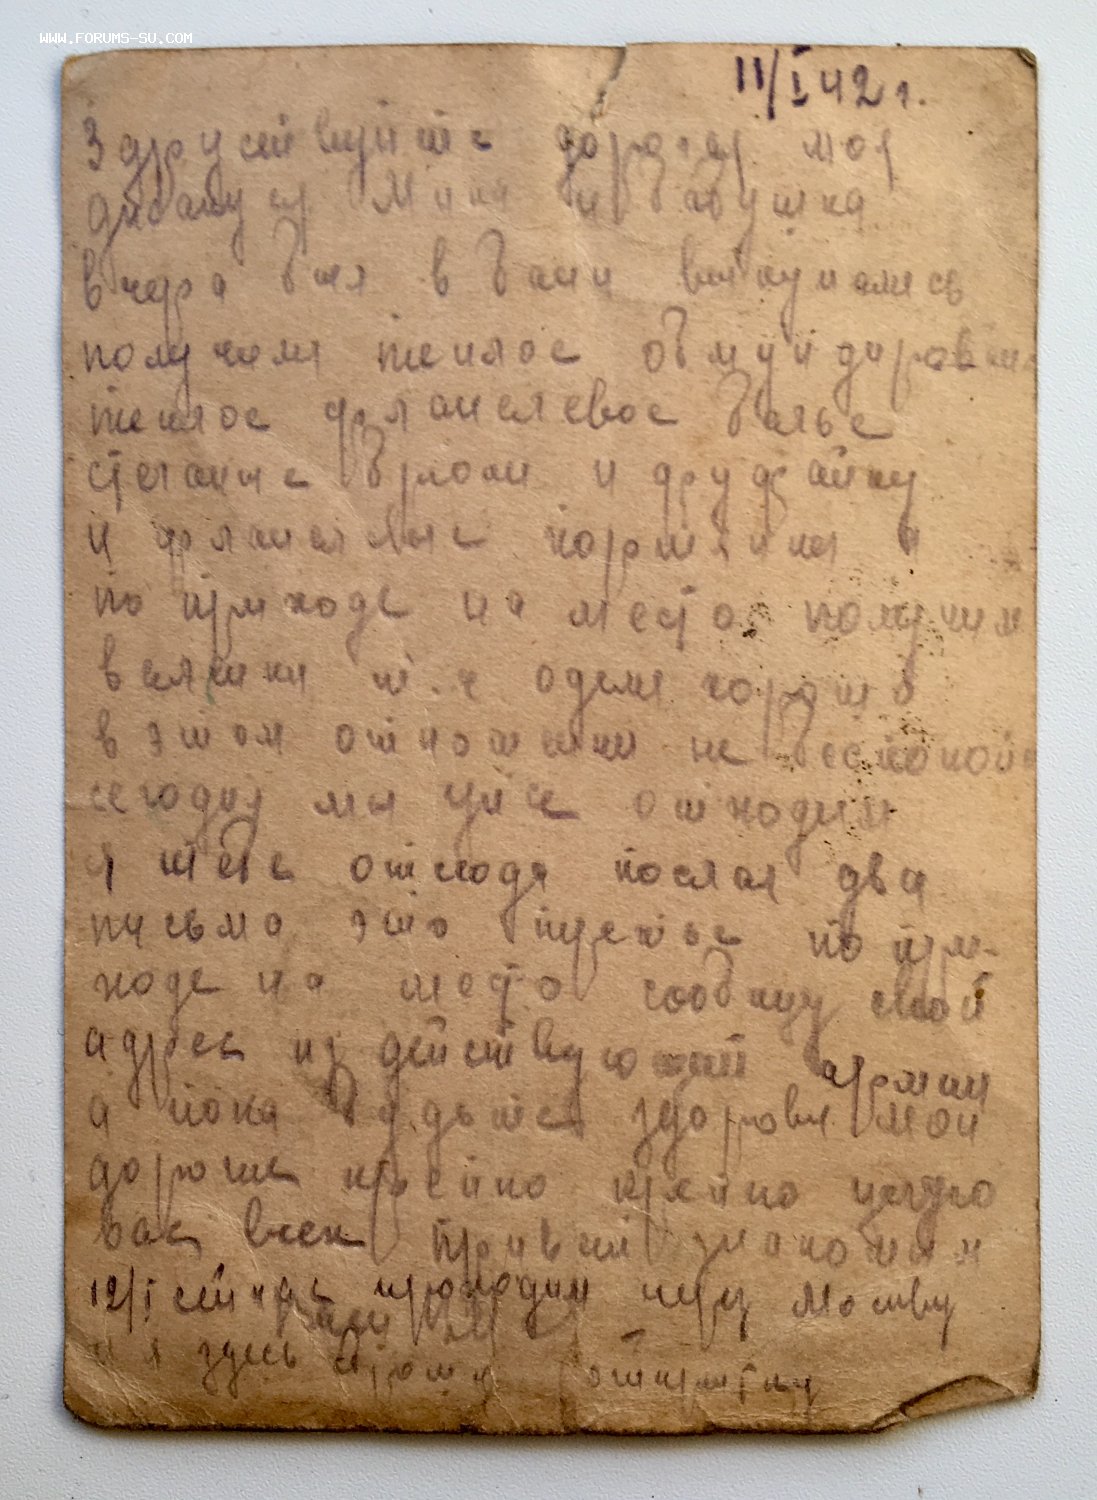 WWW.FORUMS-SU.COM
11/I 42 г.
Здруствуйте дорогая моя
Мика и бабушка
вчера был в бани выкупались
получили теплое обмундирован
теплое фланелевое белье
стеганые брюки и
и фланелевые портянки а
по приходе на место получим
валенки т.ч одеты хорошо
в этом отношении не беспокойс
сегодня мы уже отходим
я тебе отсюда послал два
письма это третье по при-
ходе на место сообщу свой
адрес из действующей армии
а пока будьте здоровы мои
дорогие крепко крепко целую
вас всех привет знакомым
12/I сейчас проходим через Москву
и я здесь брошу открытку